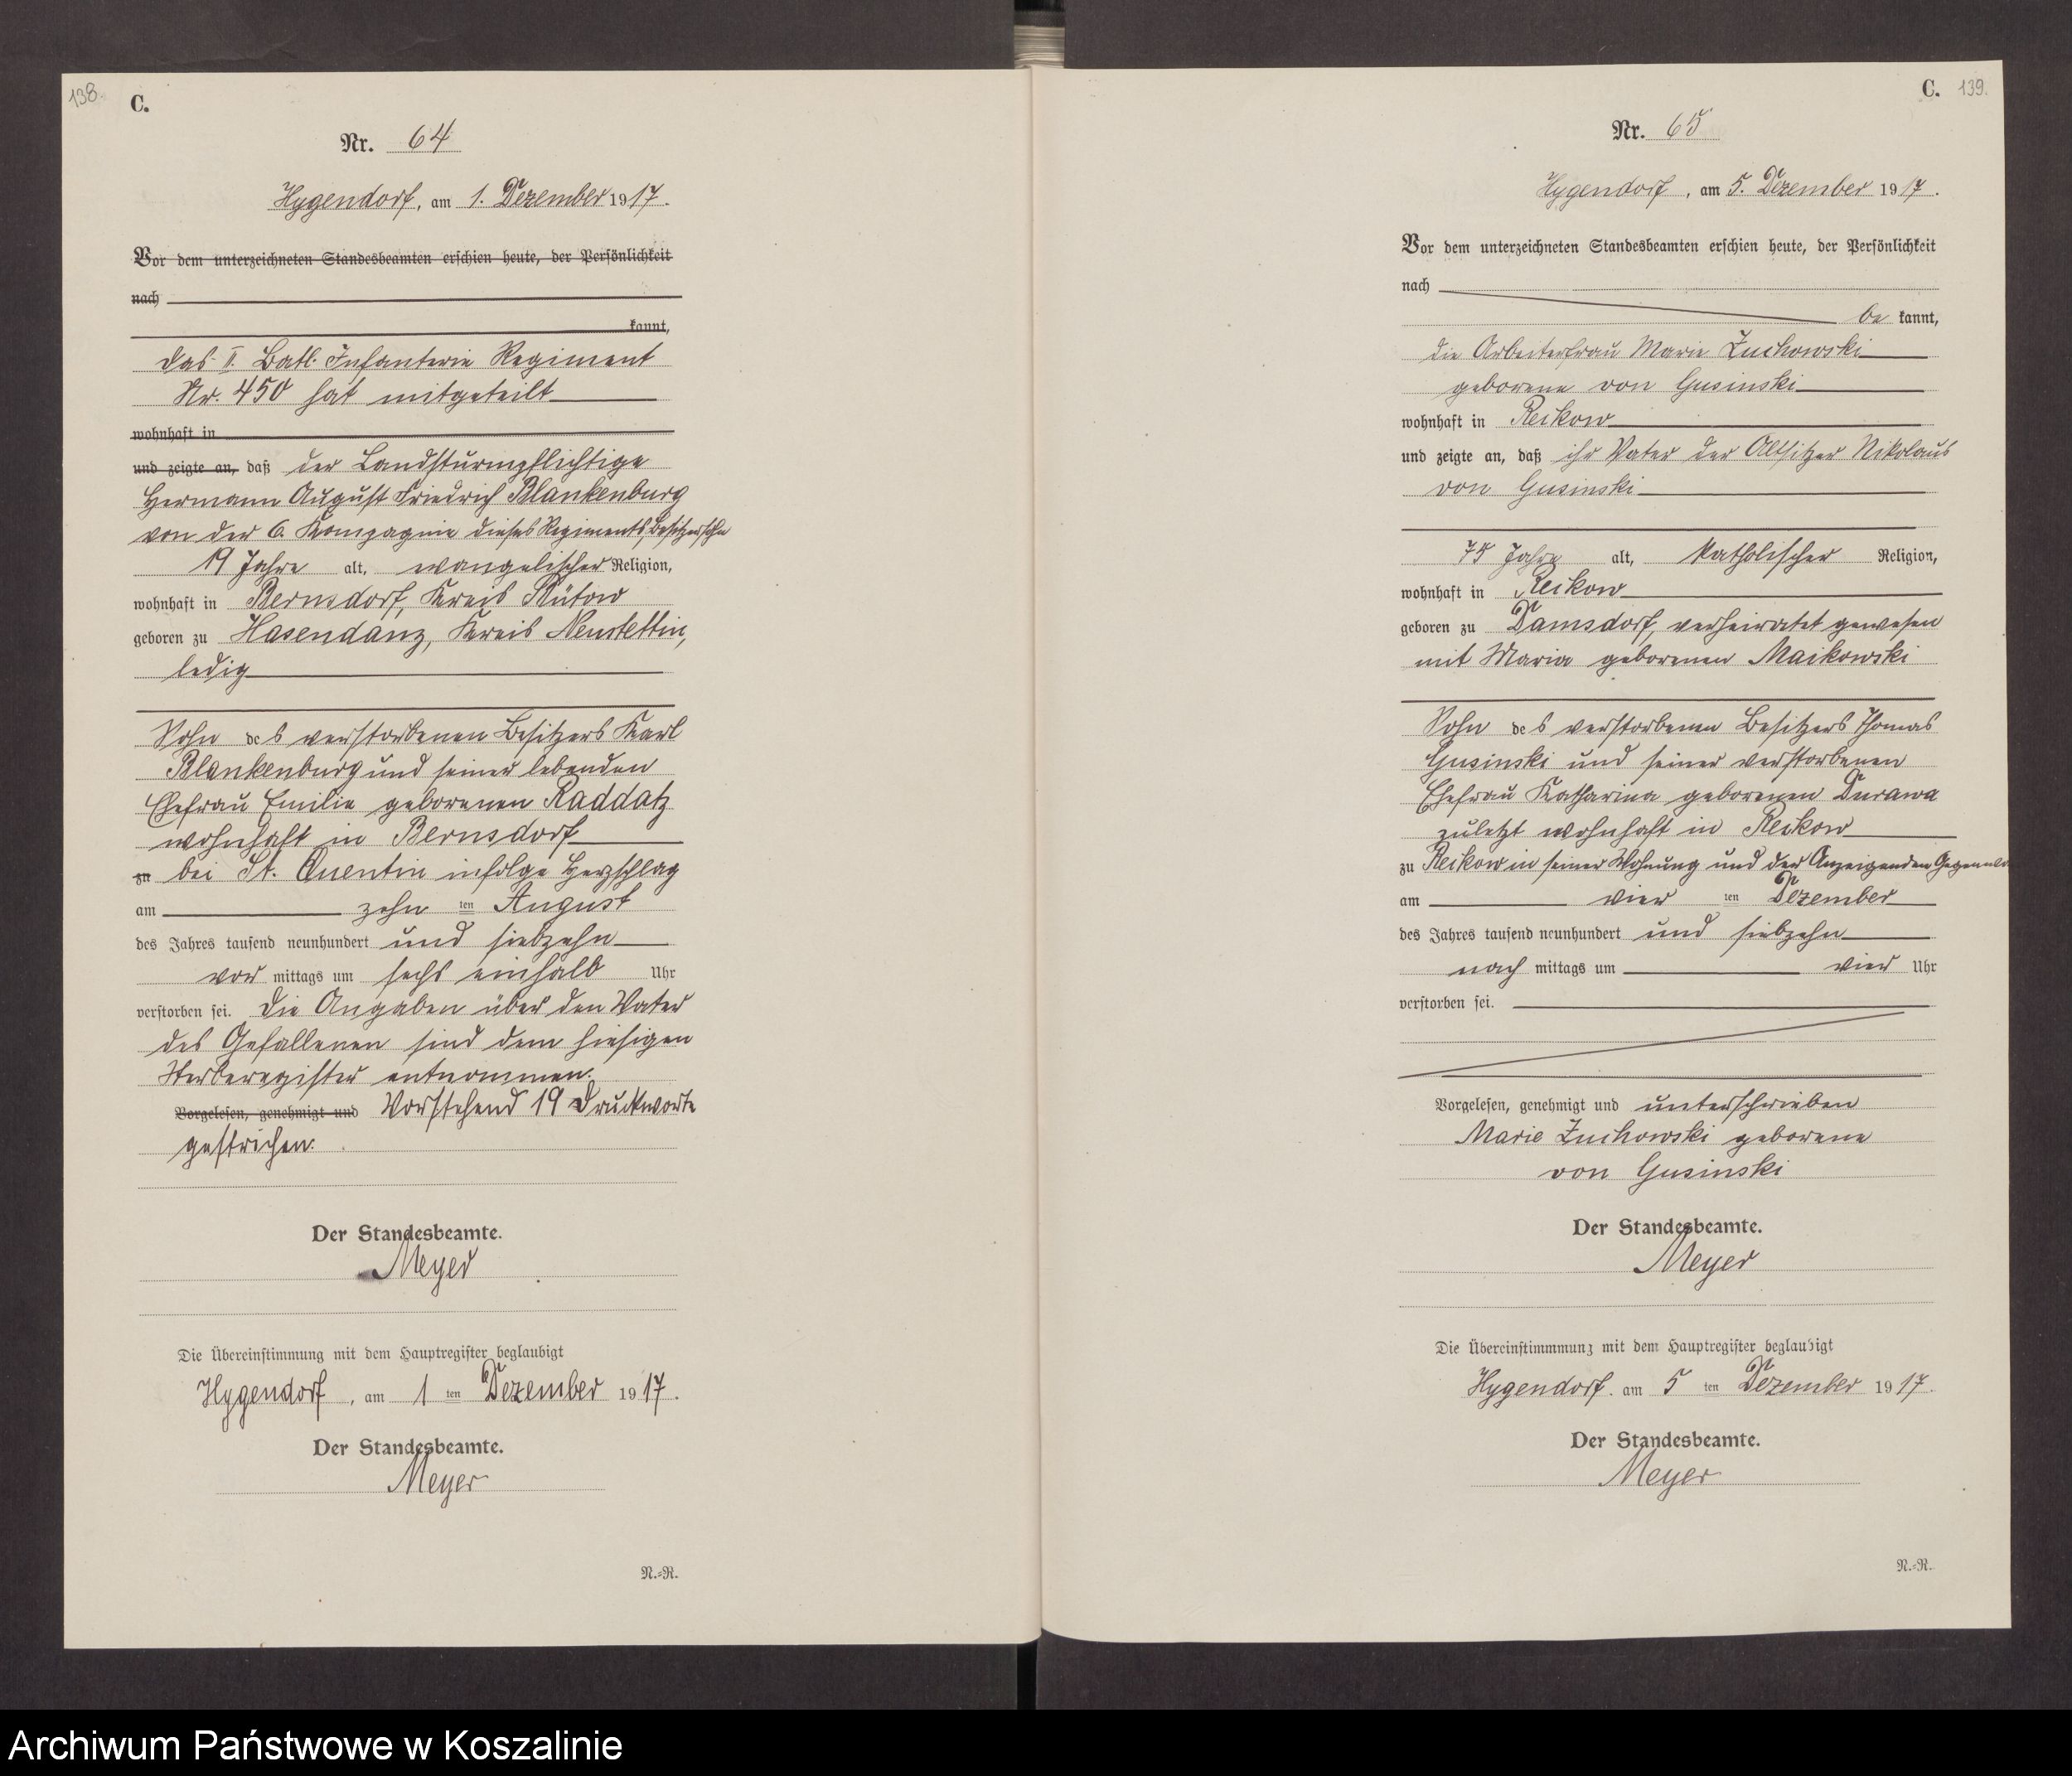 138.
C.
Nr. 64
Hygendorf, am 1. Dezember 1917.
Vor dem unterzeichneten Standesbeamten erschien heute, der Persönlichkeit
nach
kannt,
das II. Batl. Infanterie Regiment
Nr. 450 hat mitgeteilt
wohnhaft in
und zeigte an, daß der Landsturmpflichtige
Hermann August Friedrich Blankenburg
von der 6. Kompagnie dieses Regiments, Besitzersohn
19 Jahre alt, evangelischer Religion,
wohnhaft in Bernsdorf, Kreis Bütow
geboren zu Hasendanz, Kreis Neustettin,
ledig
Sohn des verstorbenen Besitzers Karl
Blankenburg und seiner lebenden
Ehefrau Emilie geborenen Raddatz
wohnhaft in Bernsdorf
zu bei St. Quentin infolge Herzschlag
am zehn ten August
des Jahres tausend neunhundert und siebzehn
vor mittags um sechs einhalb Uhr
verstorben sei. Die Angaben über den Vater
des Gefallenen sind dem hiesigen
Sterberegister entnommen.
Vorgelesen, genehmigt und Vorstehend 19 Druckworte
gestrichen.
Der Standesbeamte.
Meyer
Die Übereinstimmung mit dem Hauptregister beglaubigt
Hygendorf, am 1 ten Dezember 1917.
Der Standesbeamte.
Meyer
N.=R.
C. 139.
Nr. 65
Hygendorf, am 5. Dezember 1917.
Vor dem unterzeichneten Standesbeamten erschien heute, der Persönlichkeit
nach
be kannt,
die Arbeiterfrau Marie Zuchowski
geborene von Gusinski
wohnhaft in Reikow
und zeigte an, daß ihr Vater der Altsitzer Nikolaus
von Gusinski
75 Jahre alt, katholischer Religion,
wohnhaft in Reikow
geboren zu Damsdorf, verheiratet gewesen
mit Maria geborenen Maikowski
Sohn des verstorbenen Besitzers Thomas
Gusinski und seiner verstorbenen
Ehefrau Katharina geborenen Durawa
zuletzt wohnhaft in Reikow
zu Reikow in seiner Wohnung und der Anzeigenden Gegenwart
am vier ten Dezember
des Jahres tausend neunhundert und siebzehn
nach mittags um vier Uhr
verstorben sei.
Vorgelesen, genehmigt und unterschrieben
Marie Zuchowski geborene
von Gusinski
Der Standesbeamte.
Meyer
Die Übereinstimmung mit dem Hauptregister beglaubigt
Hygendorf. am 5 ten Dezember 1917.
Der Standesbeamte.
Meyer
N.=R.
Archiwum Państwowe w Koszalinie